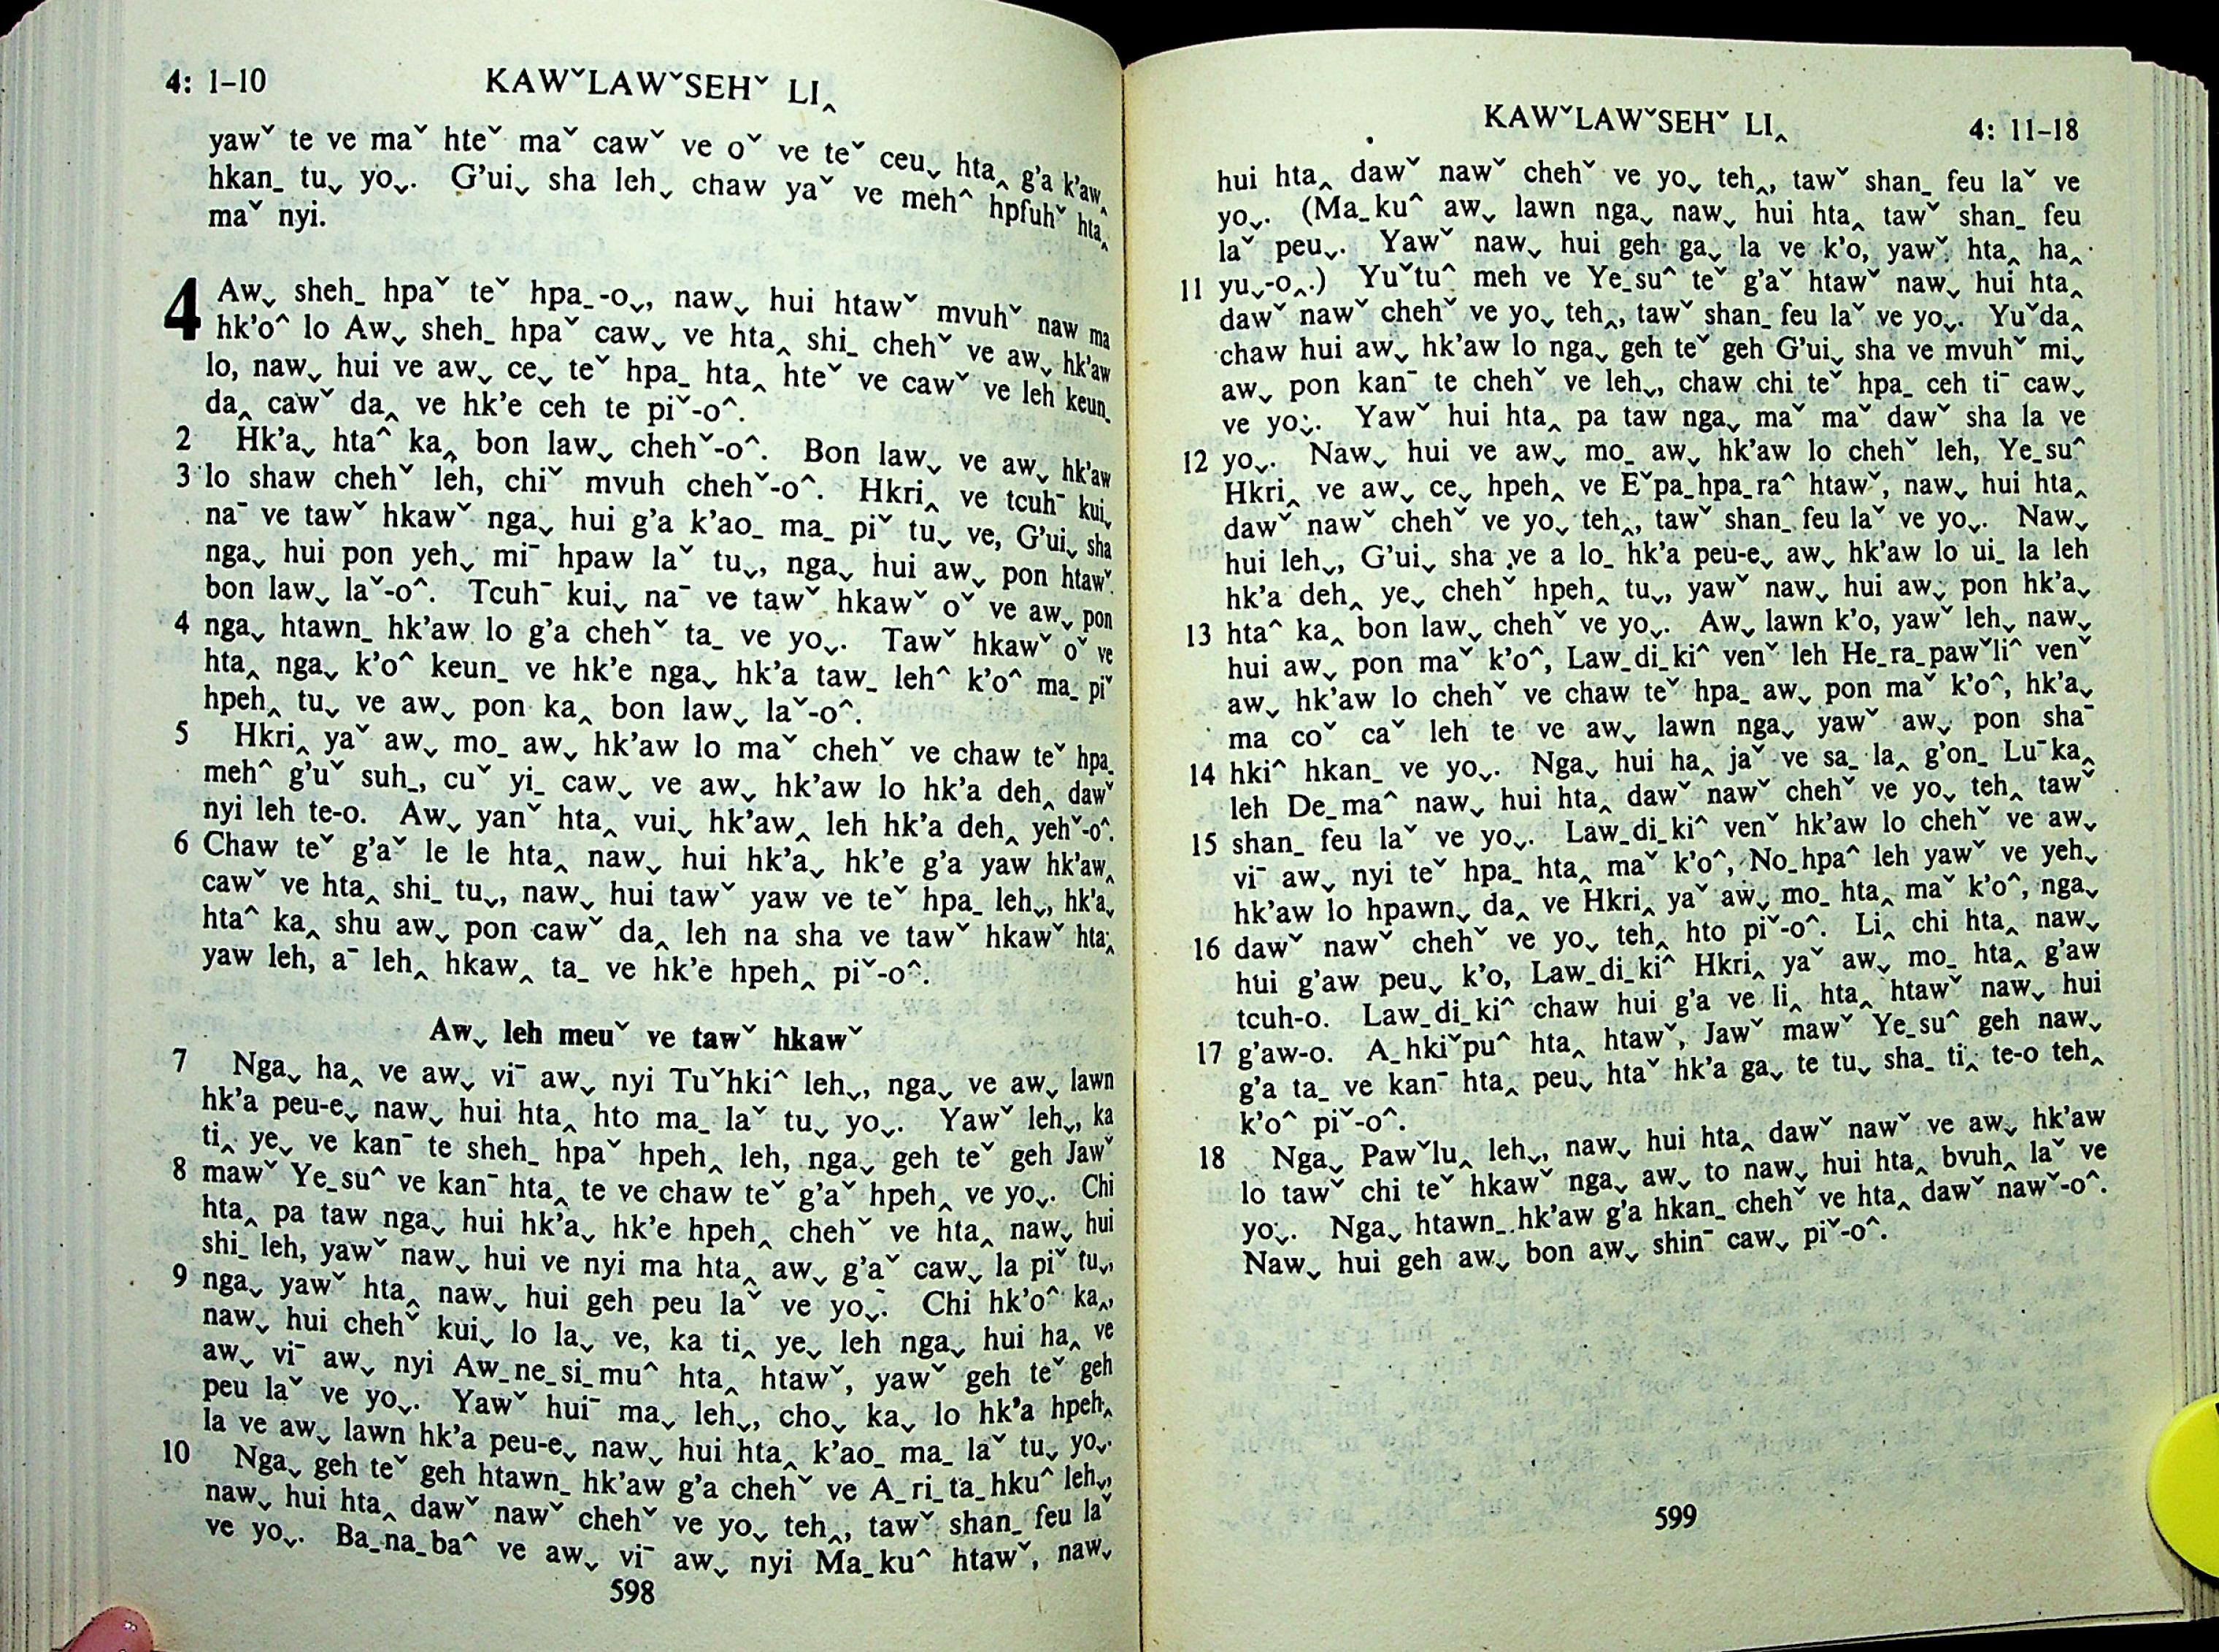 4: 1–10 KAWˇLAWˇSEHˇ LI‸
yawˇ te ve maˇ hteˇ maˇ cawˇ ve oˇ ve teˇ ceuˬ hta‸ g’a k’aw‸
hkan_ tuˬ yoˬ. G’uiˬ sha lehˬ chaw yaˇ ve meh^ hpfuhˇ hta‸
maˇ nyi.
4 Awˬ sheh_ hpaˇ teˇ hpa_-oˬ, nawˬ hui htawˇ mvuhˇ naw ma
hk’o^ lo Awˬ sheh_ hpaˇ cawˬ ve hta‸ shi_ chehˇ ve awˬ hk’aw
lo, nawˬ hui ve awˬ ceˬ teˇ hpa_ hta‸ hteˇ ve cawˇ ve leh keun_
da‸ cawˇ da‸ ve hk’e ceh te piˇ-o^.
2 Hk’aˬ hta^ ka‸ bon lawˬ chehˇ-o^. Bon lawˬ ve awˬ hk’aw
3 lo shaw chehˇ leh, chiˇ mvuh chehˇ-o^. Hkri‸ ve tcuh¯ kuiˬ
na¯ ve tawˇ hkawˇ ngaˬ hui g’a k’ao_ ma_ piˇ tuˬ ve, G’uiˬ sha
ngaˬ hui pon yehˬ mi¯ hpaw laˇ tuˬ, ngaˬ hui awˬ pon htawˇ
bon lawˬ laˇ-o^. Tcuh¯ kuiˬ na¯ ve tawˇ hkawˇ oˇ ve awˬ pon
4 ngaˬ htawn_ hk’aw lo g’a chehˇ ta_ ve yoˬ. Tawˇ hkawˇ oˇ ve
hta‸ ngaˬ k’o^ keun_ ve hk’e ngaˬ hk’a taw_ leh^ k’o^ ma_ piˇ
hpeh‸ tuˬ ve awˬ pon ka‸ bon lawˬ laˇ-o^.
5 Hkri‸ yaˇ awˬ mo_ awˬ hk’aw lo maˇ chehˇ ve chaw teˇ hpa_
meh^ g’uˇ suh_, cuˇ yi_ cawˬ ve awˬ hk’aw lo hk’a deh‸ dawˇ
nyi leh te-o. Awˬ yanˇ hta‸ vuiˬ hk’aw‸ leh hk’a deh‸ yehˇ-o^.
6 Chaw teˇ g’aˇ le le hta‸ nawˬ hui hk’aˬ hk’e g’a yaw hk’aw‸
cawˇ ve hta‸ shi_ tuˬ, nawˬ hui tawˇ yaw ve teˇ hpa_ lehˬ, hk’aˬ
hta^ ka‸ shu awˬ pon cawˇ da‸ leh na sha ve tawˇ hkawˇ hta‸
yaw leh, a¯ leh‸ hkaw‸ ta_ ve hk’e hpeh‸ piˇ-o^.
Awˬ leh meuˇ ve tawˇ hkawˇ
7 Ngaˬ ha‸ ve awˬ vi¯ awˬ nyi Tuˇhki^ lehˬ, ngaˬ ve awˬ lawn
hk’a peu-eˬ nawˬ hui hta‸ hto ma_ laˇ tuˬ yoˬ. Yawˇ lehˬ, ka
ti‸ yeˬ ve kan¯ te sheh_ hpaˇ hpeh‸ leh, ngaˬ geh teˇ geh Jawˇ
8 mawˇ Ye_su^ ve kan¯ hta‸ te ve chaw teˇ g’aˇ hpeh‸ ve yoˬ. Chi
hta‸ pa taw ngaˬ hui hk’aˬ hk’e hpeh‸ chehˇ ve hta‸ nawˬ hui
shi_ leh, yawˇ nawˬ hui ve nyi ma hta‸ awˬ g’aˇ cawˬ la piˇ tuˬ,
9 ngaˬ yawˇ hta‸ nawˬ hui geh peu laˇ ve yoˬ. Chi hk’o^ ka‸,
nawˬ hui chehˇ kuiˬ lo laˬ ve, ka ti‸ yeˬ leh ngaˬ hui ha‸ ve
awˬ vi¯ awˬ nyi Aw_ne_si_mu^ hta‸ htawˇ, yawˇ geh teˇ geh
peu laˇ ve yoˬ. Yawˇ hui¯ maˬ lehˬ, choˬ kaˬ lo hk’a hpeh‸
la ve awˬ lawn hk’a peu-eˬ nawˬ hui hta‸ k’ao_ ma_ laˇ tuˬ yoˬ.
10 Ngaˬ geh teˇ geh htawn_ hk’aw g’a chehˇ ve A_ri_ta_hku^ lehˬ,
nawˬ hui hta‸ dawˇ nawˇ chehˇ ve yoˬ teh‸, tawˇ shan_ feu laˇ
ve yoˬ. Ba_na_ba^ ve awˬ vi¯ awˬ nyi Ma_ku^ htawˇ, nawˬ
598
KAWˇLAWˇSEHˇ LI‸ 4: 11–18
hui hta‸ dawˇ nawˇ chehˇ ve yoˬ teh‸, tawˇ shan_ feu laˇ ve
yoˬ. (Ma_ku^ awˬ lawn ngaˬ nawˬ hui hta‸ tawˇ shan_ feu
laˇ peuˬ. Yawˇ nawˬ hui geh gaˬ la ve k’o, yawˇ hta‸ ha‸
11 yuˬ-o‸.) Yuˇtu^ meh ve Ye_su^ teˇ g’aˇ htawˇ nawˬ hui hta‸
dawˇ nawˇ chehˇ ve yoˬ teh‸, tawˇ shan_ feu laˇ ve yoˬ. Yuˇda‸
chaw hui awˬ hk’aw lo ngaˬ geh teˇ geh G’uiˬ sha ve mvuhˇ miˬ
awˬ pon kan¯ te chehˇ ve lehˬ, chaw chi teˇ hpa_ ceh ti¯ cawˬ
ve yoˬ. Yawˇ hui hta‸ pa taw ngaˬ maˇ maˇ dawˇ sha la ve
12 yoˬ. Nawˬ hui ve awˬ mo_ awˬ hk’aw lo chehˇ leh, Ye_su^
Hkri‸ ve awˬ ceˬ hpeh‸ ve Eˇpa_hpa_ra^ htawˇ, nawˬ hui hta‸
dawˇ nawˇ chehˇ ve yoˬ teh‸, tawˇ shan_ feu laˇ ve yoˬ. Nawˬ
hui lehˬ, G’uiˬ sha ve a lo_ hk’a peu-eˬ awˬ hk’aw lo ui_ la leh
hk’a deh‸ yeˬ chehˇ hpeh‸ tuˬ, yawˇ nawˬ hui awˬ pon hk’aˬ
13 hta^ ka‸ bon lawˬ chehˇ ve yoˬ. Awˬ lawn k’o, yawˇ lehˬ nawˬ
hui awˬ pon maˇ k’o^, Law_di_ki^ venˇ leh He_ra_pawˇli^ venˇ
awˬ hk’aw lo chehˇ ve chaw teˇ hpa_ awˬ pon maˇ k’o^, hk’aˬ
ma coˇ caˇ leh te ve awˬ lawn ngaˬ yawˇ awˬ pon sha¯
14 hki^ hkan_ ve yoˬ. Ngaˬ hui ha‸ jaˇ ve sa_ la‸ g’on_ Lu¯ka‸
leh De_ma^ nawˬ hui hta‸ dawˇ nawˇ chehˇ ve yoˬ teh‸ tawˇ
15 shan_ feu laˇ ve yoˬ. Law_di_ki^ venˇ hk’aw lo chehˇ ve awˬ
vi¯ awˬ nyi teˇ hpa_ hta‸ maˇ k’o^, No_hpa^ leh yawˇ ve yehˬ
hk’aw lo hpawnˬ da‸ ve Hkri‸ yaˇ awˬ mo_ hta‸ maˇ k’o^, ngaˬ
16 dawˇ nawˇ chehˇ ve yoˬ teh‸ hto piˇ-o^. Li‸ chi hta‸ nawˬ
hui g’aw peuˬ k’o, Law_di_ki^ Hkri‸ yaˇ awˬ mo_ hta‸ g’aw
tcuh-o. Law_di_ki^ chaw hui g’a ve li‸ hta‸ htawˇ nawˬ hui
17 g’aw-o. A_hkiˇpu^ hta‸ htawˇ, Jawˇ mawˇ Ye_su^ geh nawˬ
g’a ta_ ve kan¯ hta‸ peuˬ htaˇ hk’a gaˬ te tuˬ sha_ ti‸ te-o teh‸
k’o^ piˇ-o^.
18 Ngaˬ Pawˇlu‸ lehˬ, nawˬ hui hta‸ dawˇ nawˇ ve awˬ hk’aw
lo tawˇ chi teˇ hkawˇ ngaˬ awˬ to nawˬ hui hta‸ bvuh‸ laˇ ve
yoˬ. Ngaˬ htawn_ hk’aw g’a hkan_ chehˇ ve hta‸ dawˇ nawˇ-o^.
Nawˬ hui geh awˬ bon awˬ shin¯ cawˬ piˇ-o^.
599